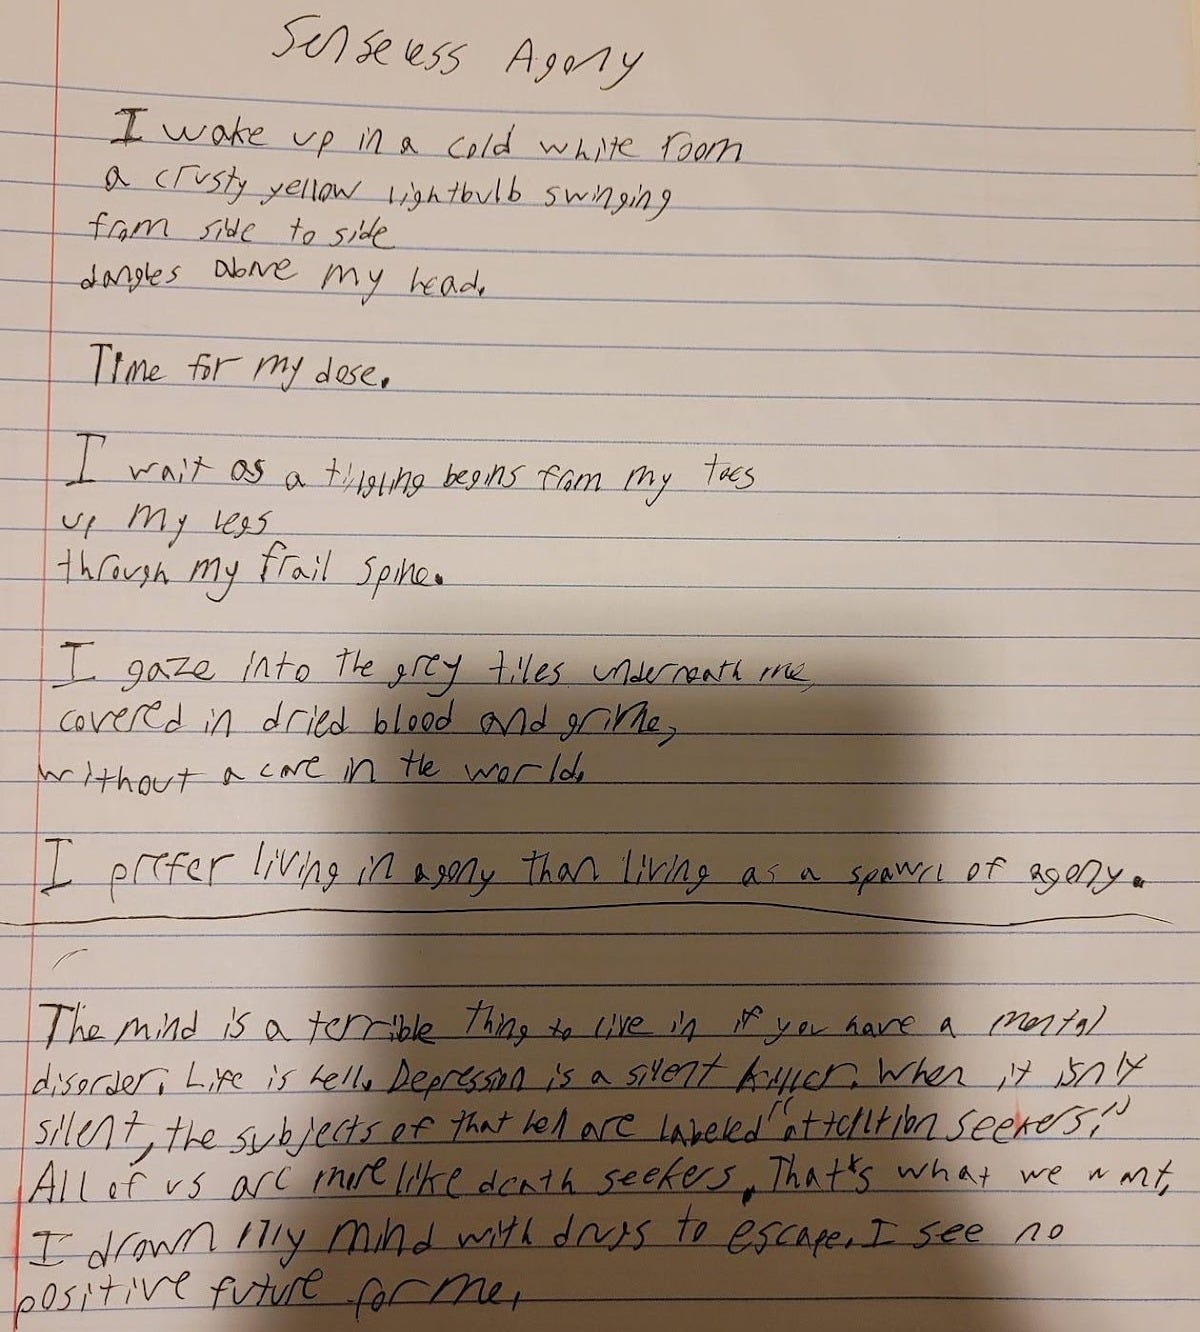 Senseless Agony
I wake up in a cold white room
a crusty yellow lightbulb swinging
from side to side
dangles above my head.
Time for my dose.
I wait as a tingling begins from my toes
up my legs
through my frail spine.
I gaze into the grey tiles underneath me,
covered in dried blood and grime,
without a care in the world.
I prefer living in agony than living as a spawn of agony.
The mind is a terrible thing to live in if you have a mental
disorder. Life is hell. Depression is a silent killer. When it isn't
silent, the subjects of that hell are labeled "attention seekers."
All of us are more like death seekers. That's what we want.
I drown my mind with drugs to escape. I see no
positive future for me.